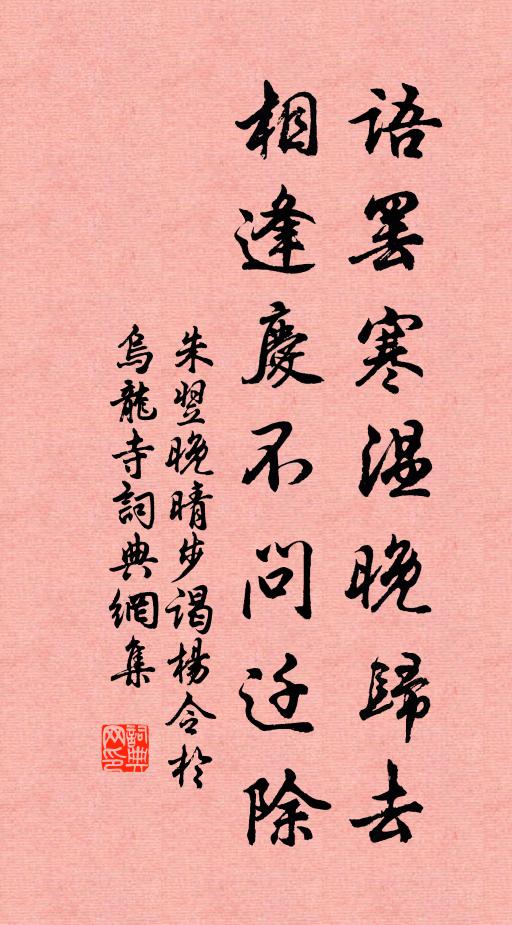 語罷寒温晚歸去
相逢慶不問迁除
朱翌晚晴步謁楊令於
烏龍寺詞典網集
詞典网印